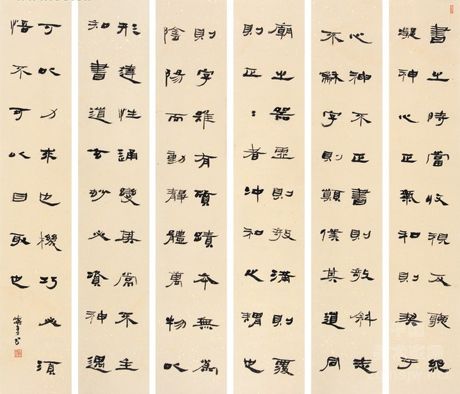 書之時當收視反聽絕
凝神心正氣和則契于
心神不正書則敧斜志
不龢字則顛僕其道同
廟之器虛則敧滿則覆
則正〻者沖和之謂也
則字雖有質蹟本無為
陰陽而動靜體萬物以
形達性通變其常不主
知書道玄妙必資神遇
可以力求也機巧必須
悟不可以目取也